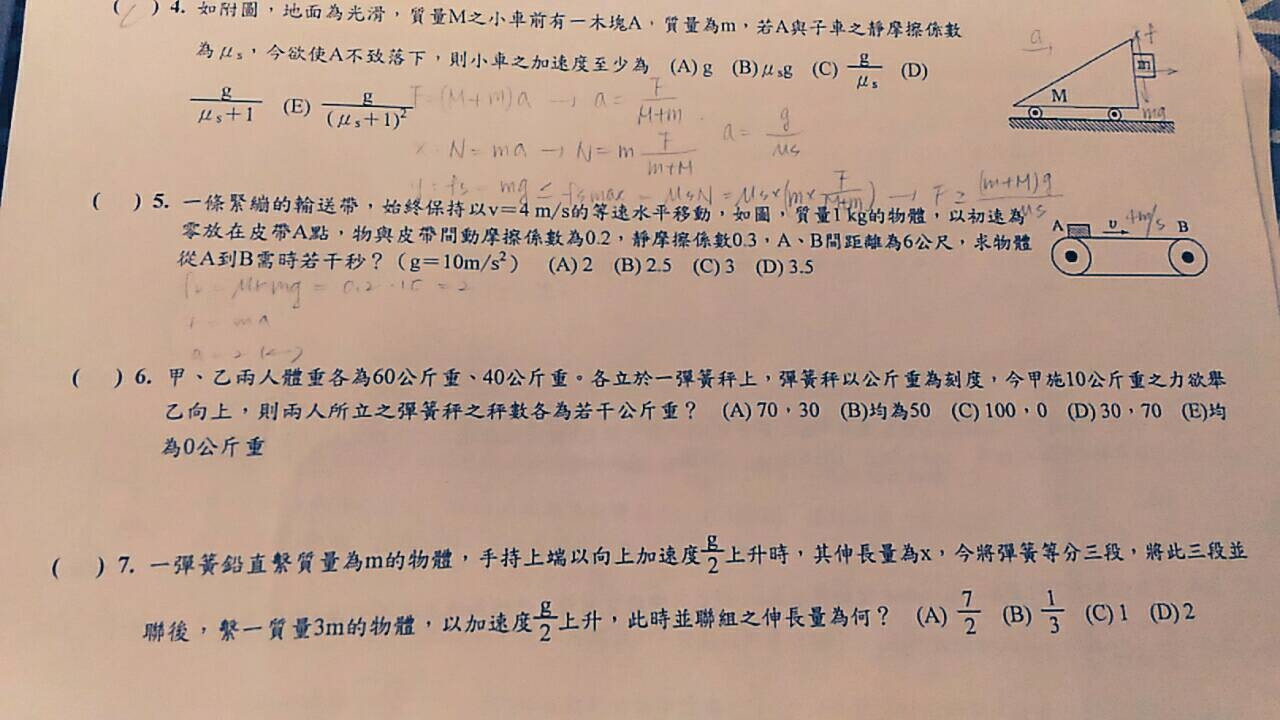 ( ) 4. 如附圖，地面為光滑，質量M之小車前有一木塊A，質量為m，若A與子車之靜摩擦係數
為μs，今欲使A不致落下，則小車之加速度至少為 (A) g (B) μsg (C) g/μs (D)
g/μs＋1 (E) g/(μs＋1)²
F=(M+m)a → a= F/M+m
a= g/μs
x: N=ma → N=m F/m+M
fs = mg ≤ fsmax = μsN = μs×(m× F/M+m) → F ≥ (m+M)g/μs
a
f
m
M
mg
( ) 5. 一條緊繃的輸送帶，始終保持以v＝4 m/s的等速水平移動，如圖，質量1 kg的物體，以初速為
零放在皮帶A點，物與皮帶間動摩擦係數為0.2，靜摩擦係數0.3，A、B間距離為6公尺，求物體
從A到B需時若干秒？（g＝10m/s²） (A) 2 (B) 2.5 (C) 3 (D) 3.5
A υ 4m/s B
= 0.2 · 10 = 2
= ma
a = 2
( ) 6. 甲、乙兩人體重各為60公斤重、40公斤重。各立於一彈簧秤上，彈簧秤以公斤重為刻度，今甲施10公斤重之力欲舉
乙向上，則兩人所立之彈簧秤之秤數各為若干公斤重？ (A) 70，30 (B)均為50 (C) 100，0 (D) 30，70 (E)均
為0公斤重
( ) 7. 一彈簧鉛直繫質量為m的物體，手持上端以向上加速度g/2上升時，其伸長量為x，今將彈簧等分三段，將此三段並
聯後，繫一質量3m的物體，以加速度g/2上升，此時並聯組之伸長量為何？ (A) 7/2 (B) 1/3 (C) 1 (D) 2